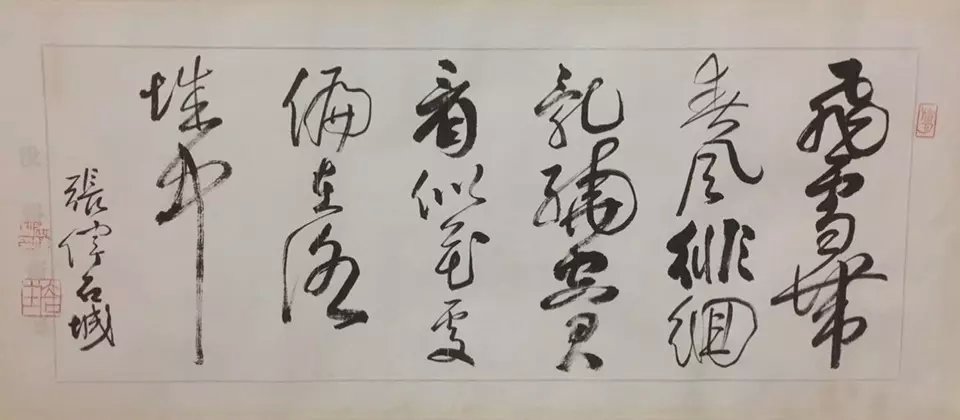 飛雪帶
春风徘徊
亂繞空君
看似花處
偏在洛
城中
張石城